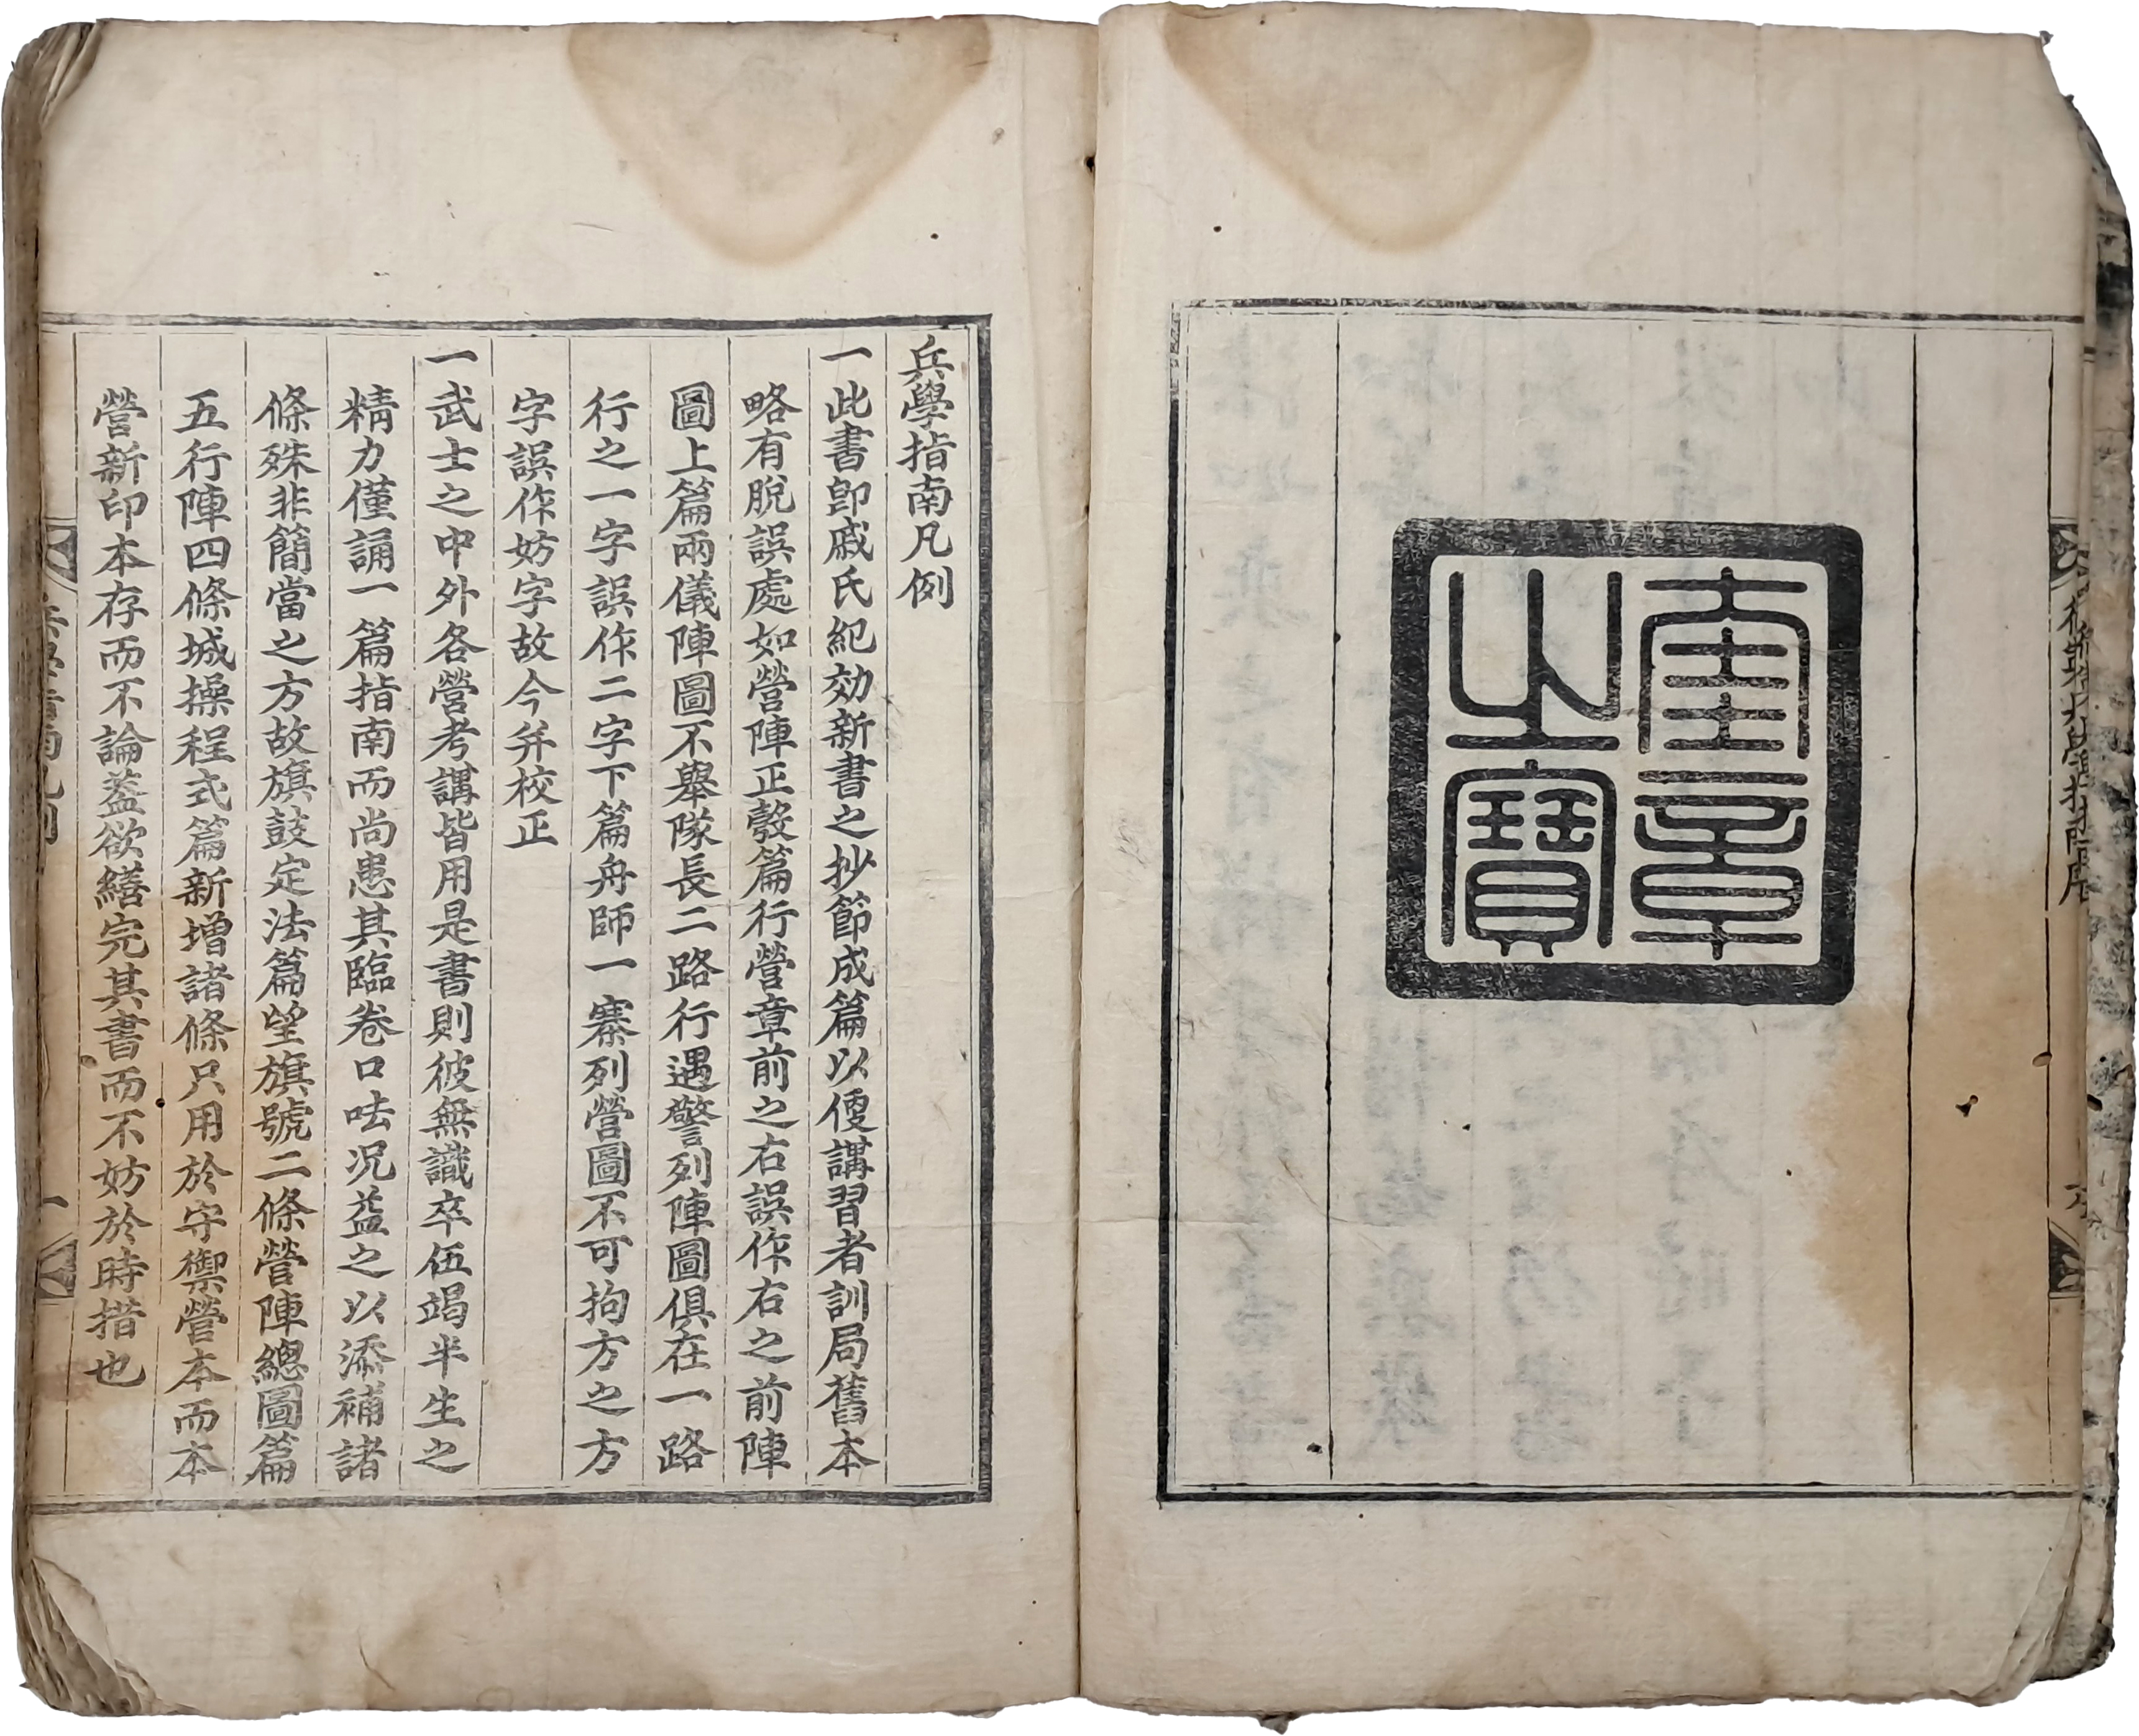 奎章
之寶
兵學指南凡例
一此書卽戚氏紀効新書之抄節成篇以便講習者訓局舊本
略有脫誤處如營陣正彀篇行營章前之右誤作右之前陣
圖上篇兩儀陣圖不擧隊長二路行遇警列陣圖俱在一路
行之一字誤作二字下篇舟師一寨列營圖不可拘方之方
字誤作妨字故今幷校正
一武士之中外各營考講皆用是書則彼無識卒伍竭半生之
精力僅誦一篇指南而尚患其臨卷口呿况益之以添補諸
條殊非簡當之方故旗鼓定法篇望旗號二條營陣總圖篇
五行陣四條城操程式篇新增諸條只用於守禦營本而本
營新印本存而不論葢欲繕完其書而不妨於時措也
兵學指南凡例
一